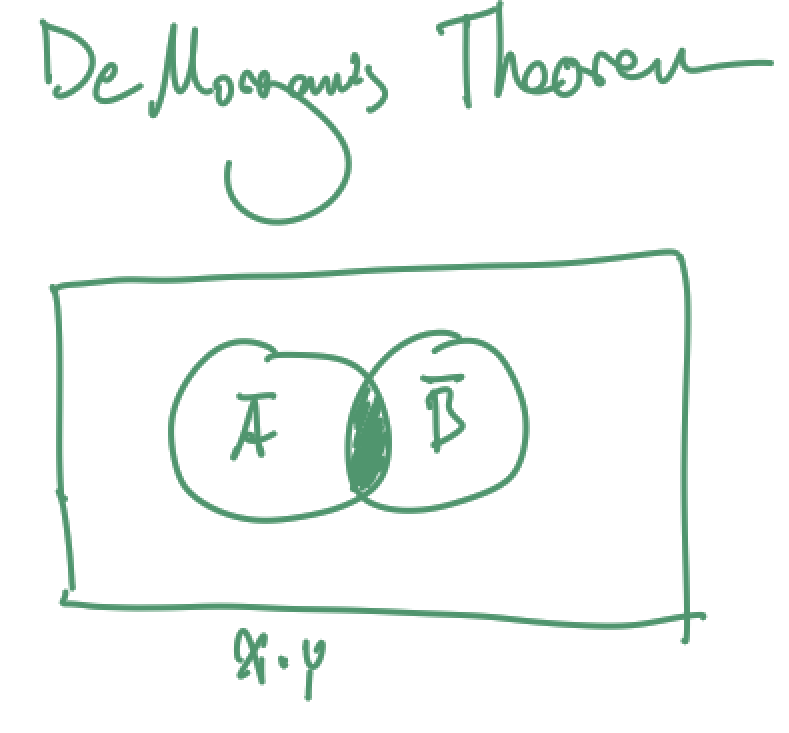 De Morgan's Theorem
A̅ B̅
x.y